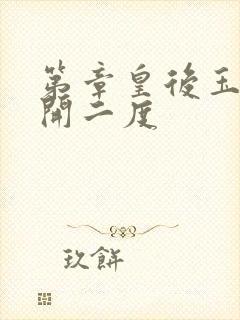 第章皇後玉
開二度
玖餅